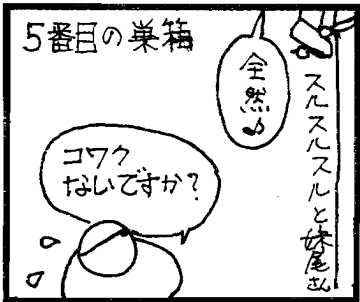 5番目の巣箱
全然♪
スルスルスルと妹尾さん
コワク
ないですか?